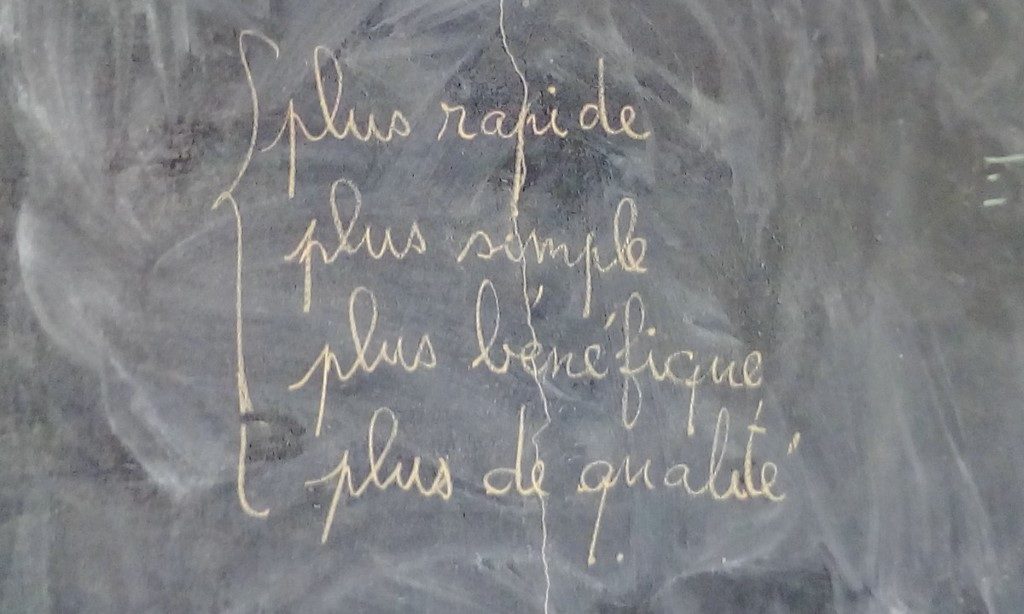 plus rapide
plus simple
plus bénéfique,
plus de qualité.